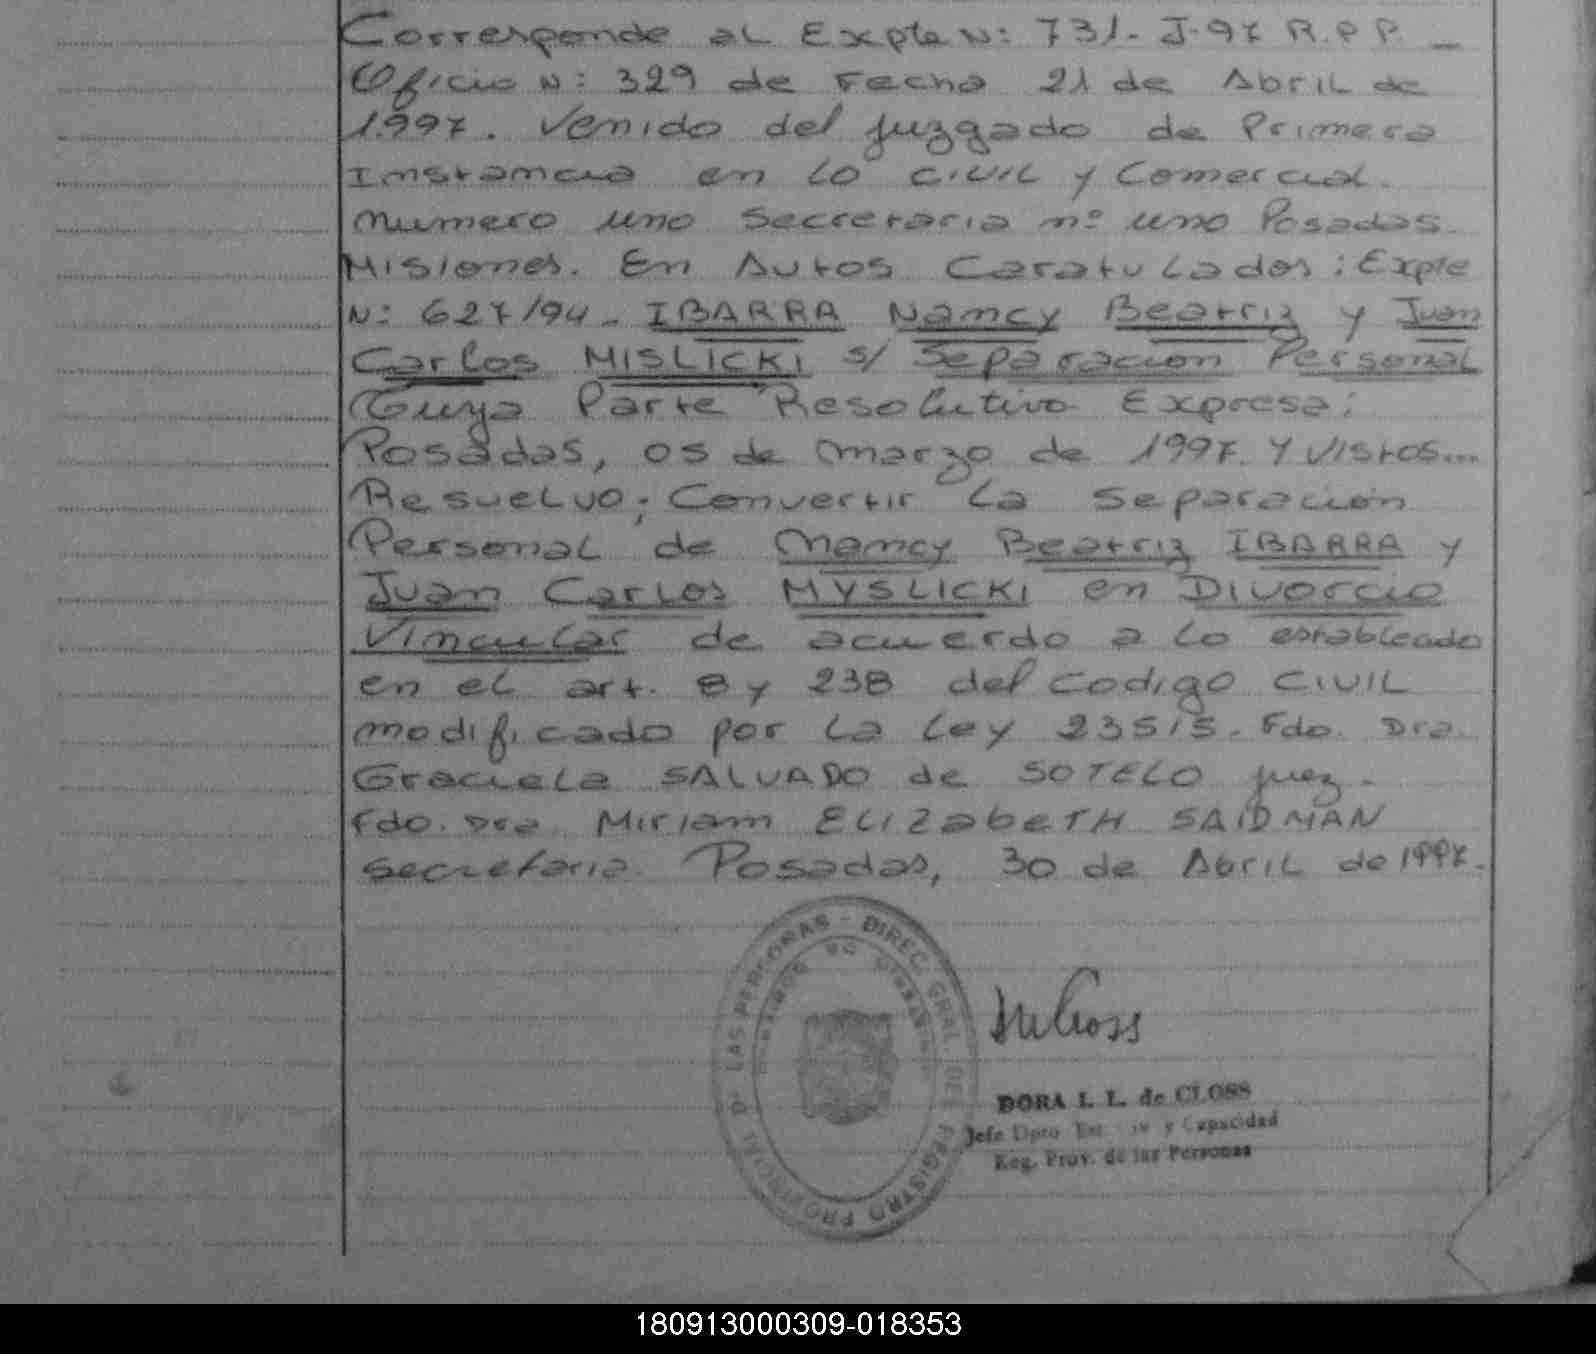 Corresponde al Expte N: 731- J-97 R.P.P. _
Oficio N: 329 de Fecha 21 de Abril de
1.997. Venido del juzgado de Primera
Instancia en lo civil y Comercial.
numero uno secretaria nº uno Posadas.
Misiones. En Autos Caratulados: Expte
N: 627/94- IBARRA Nancy Beatriz y Juan
Carlos MISLICKI s/ Separacion Personal
Cuya Parte Resolutiva Expresa:
Posadas, 05 de marzo de 1997. Y Vistos...
Resuelvo; Convertir la separación
Personal de Nancy Beatriz IBARRA y
Juan Carlos MYSLICKI en Divorcio
Vincular de acuerdo a lo establecido
en el art. 8 y 238 del Codigo Civil
modificado por la Ley 23515. Fdo. Dra.
Graciela SALVADO de SOTELO juez-
Fdo. Dra. Miriam ELIZabeTH SAIDMAN
secretaria. Posadas, 30 de Abril de 1997.
DIREC. GRAL. DEL REGISTRO PROVINCIAL D LAS PERSONAS -
DORA I. L. de CLOSS
Jefe Dpto Est. Civ y Capacidad
Reg. Prov. de las Personas
180913000309-018353